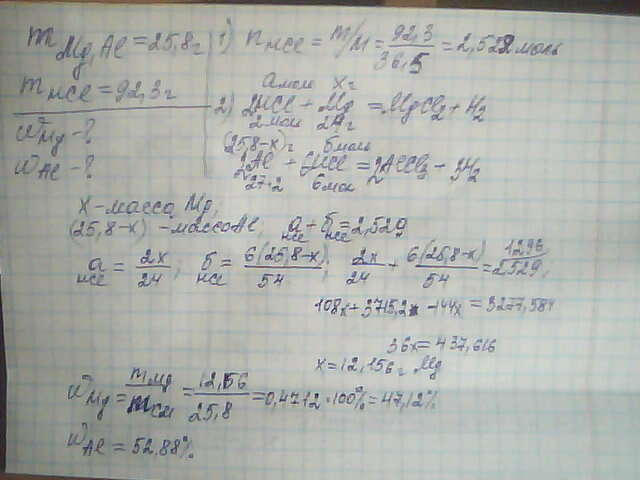 m Mg,Al = 25,8г
1) n HCl = m/M = 92,3/36,5 = 2,529 моль
m HCl = 92,3г
ω Mg - ?
ω Al - ?
а моль xг
2) 2HCl + Mg = MgCl2 + H2
2 моль 24г
(25,8-x)г б моль
2Al + 6HCl = 2AlCl3 - 3H2
27·2 6 моль
x - масса Mg,
(25,8-x) - масса Al, а HCl + б HCl = 2,529
а HCl = 2x/24; б HCl = 6(25,8-x)/54; 2x/24 + 6(25,8-x)/54 = 2,529, 1296
108x + 3715,2 - 144x = 3277,584
36x = 437,616
x = 12,156г Mg
ω Mg = m Mg/m см = 12,156/25,8 = 0,4712·100% = 47,12%
ω Al = 52,88%